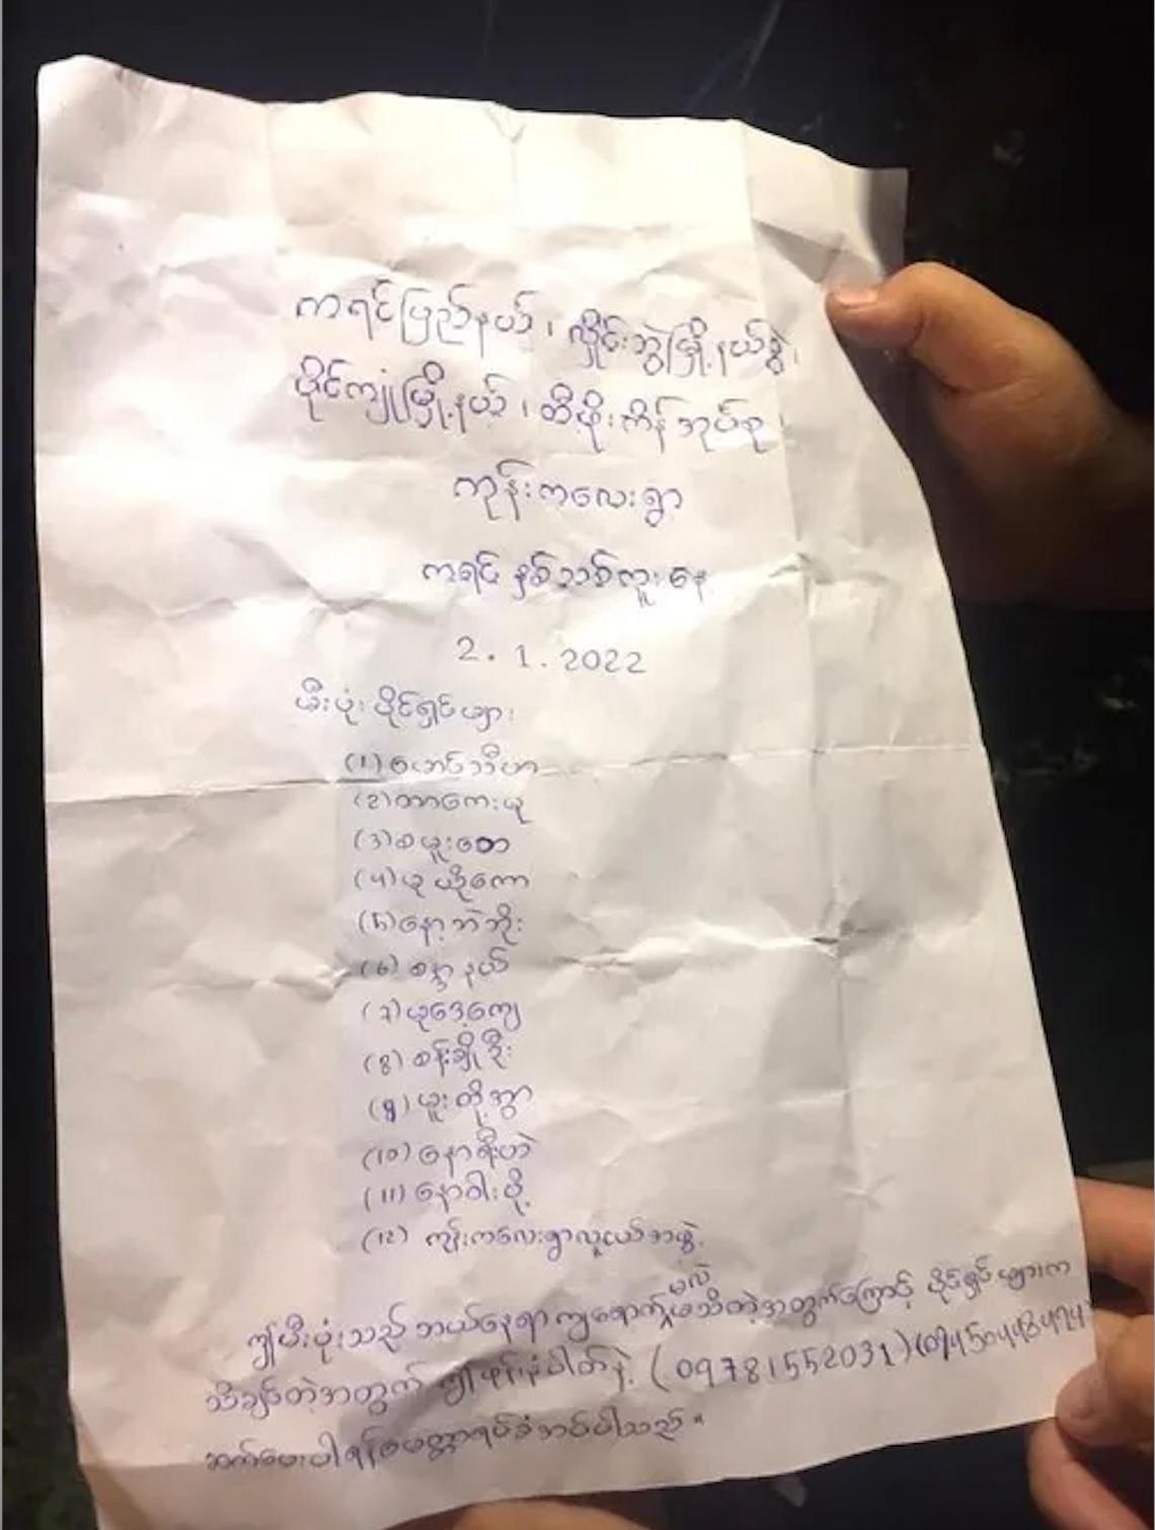 ကရင်ပြည်နယ်၊ လှိုင်းဘွဲ့မြို့နယ်ခွဲ၊
ပိုင်ကျုံမြို့နယ်၊ တီဖိုးကိန်အုပ်စု၊
ကုန်းကလေးရွာ
ကရင် နှစ်သစ်ကူးနေ့
2.1.2022
မီးပုံး ပိုင်ရှင်များ
(1)စောင်သီဟ
(2)တာကေးယု
(3)စယူးတေ
(4)ယု ယိုကော
(5)နော့ဘဲဘိုး
(6) စန္ဒာနယ်
(7)ယုဒေ့ကျေ
(8) စန်းချိုဦး
(9) ယူးတို့အွာ
(10) နောရီးဟဲ
(11) နောဝါးပို့
(12) ကုန်းကလေးရွာလူငယ်အဖွဲ့
ဤမီးပုံးသည် ဘယ်နေရာကျရောက်မှန်းမသိတဲ့အတွက်ကြောင့် ပိုင်ရှင်များက
သိချင်တဲ့အတွက် ဤဖုန်းနံပါတ်နဲ့ (09781552031)(09450448424
ဆက်ပေးပါရန်မေတ္တာရပ်ခံအပ်ပါသည်"